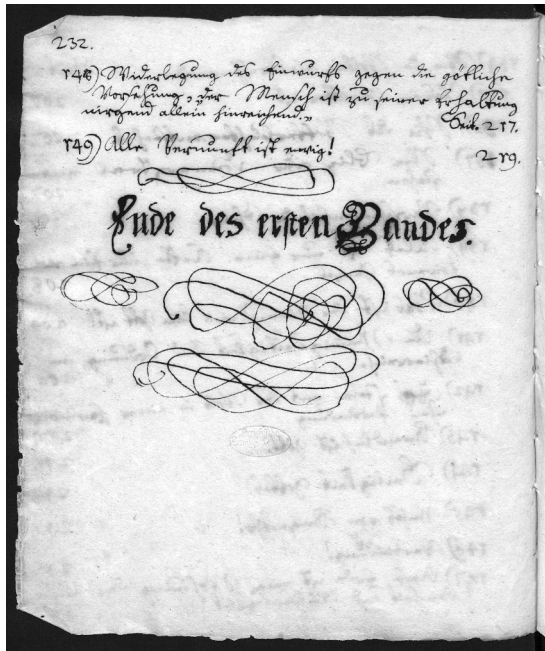 232.
148) Widerlegung des Einwurfs gegen die götliche
Vorsehung, „der Mensch ist zu seiner Erhaltung
nirgend allein hinreichend.„
Seite. 217.
149) Alle Vernunft ist ewig!
219.
Ende des ersten Bandes.